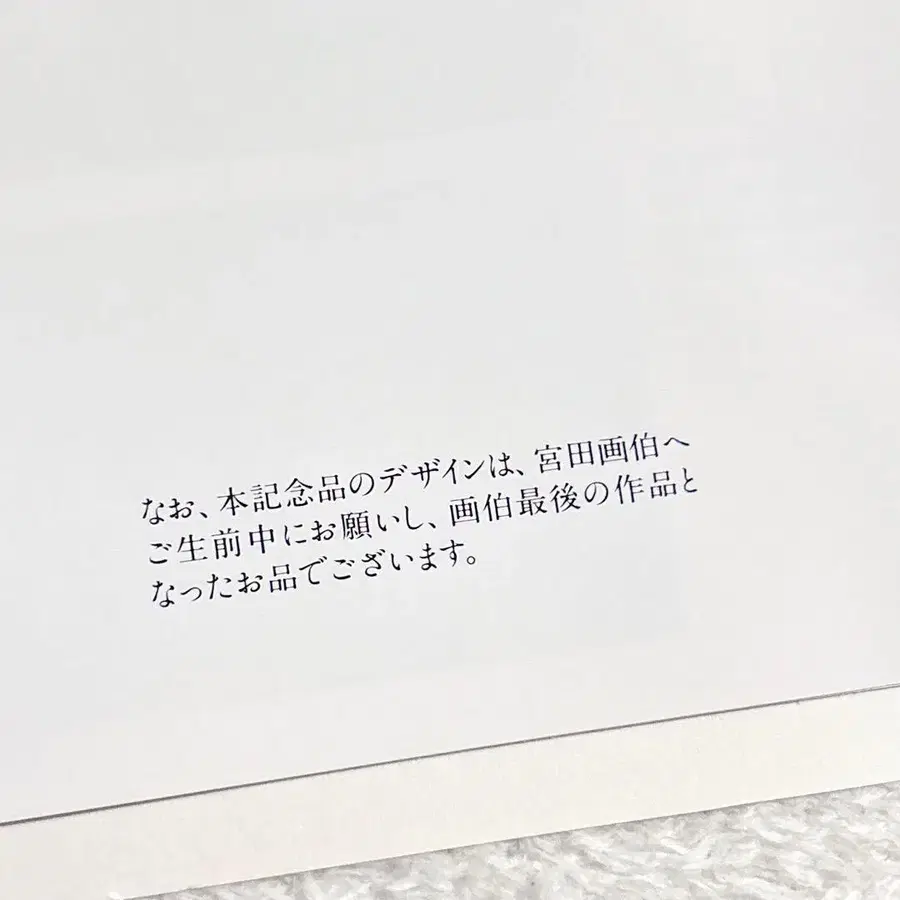 なお、本記念品のデザインは、宮田画伯へ
ご生前中にお願いし、画伯最後の作品と
なったお品でございます。